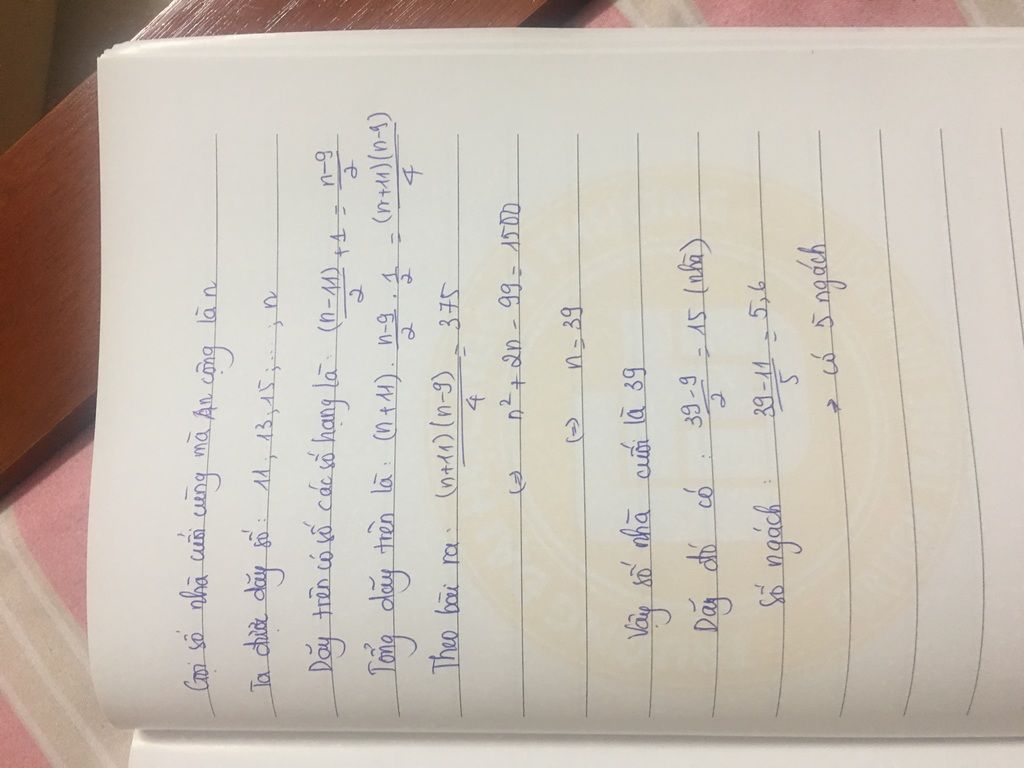 Gọi số nhà cuối cùng mà An cộng là n
Ta được dãy số: 11, 13, 15, ...., n
Dãy trên có số các số hạng là: (n-11)/2 + 1 = n-9/2
Tổng dãy trên là: (n+11). n-9/2 . 1/2 = (n+11)(n-9)/4
Theo bài ra: (n+11)(n-9)/4 = 375
(=) n² + 2n - 99 = 1500
(=) n = 39
Vậy số nhà cuối là 39
Dãy đó có: 39-9/2 = 15 (nhà)
Số ngách: 39-11/5 = 5,6
→ có 5 ngách